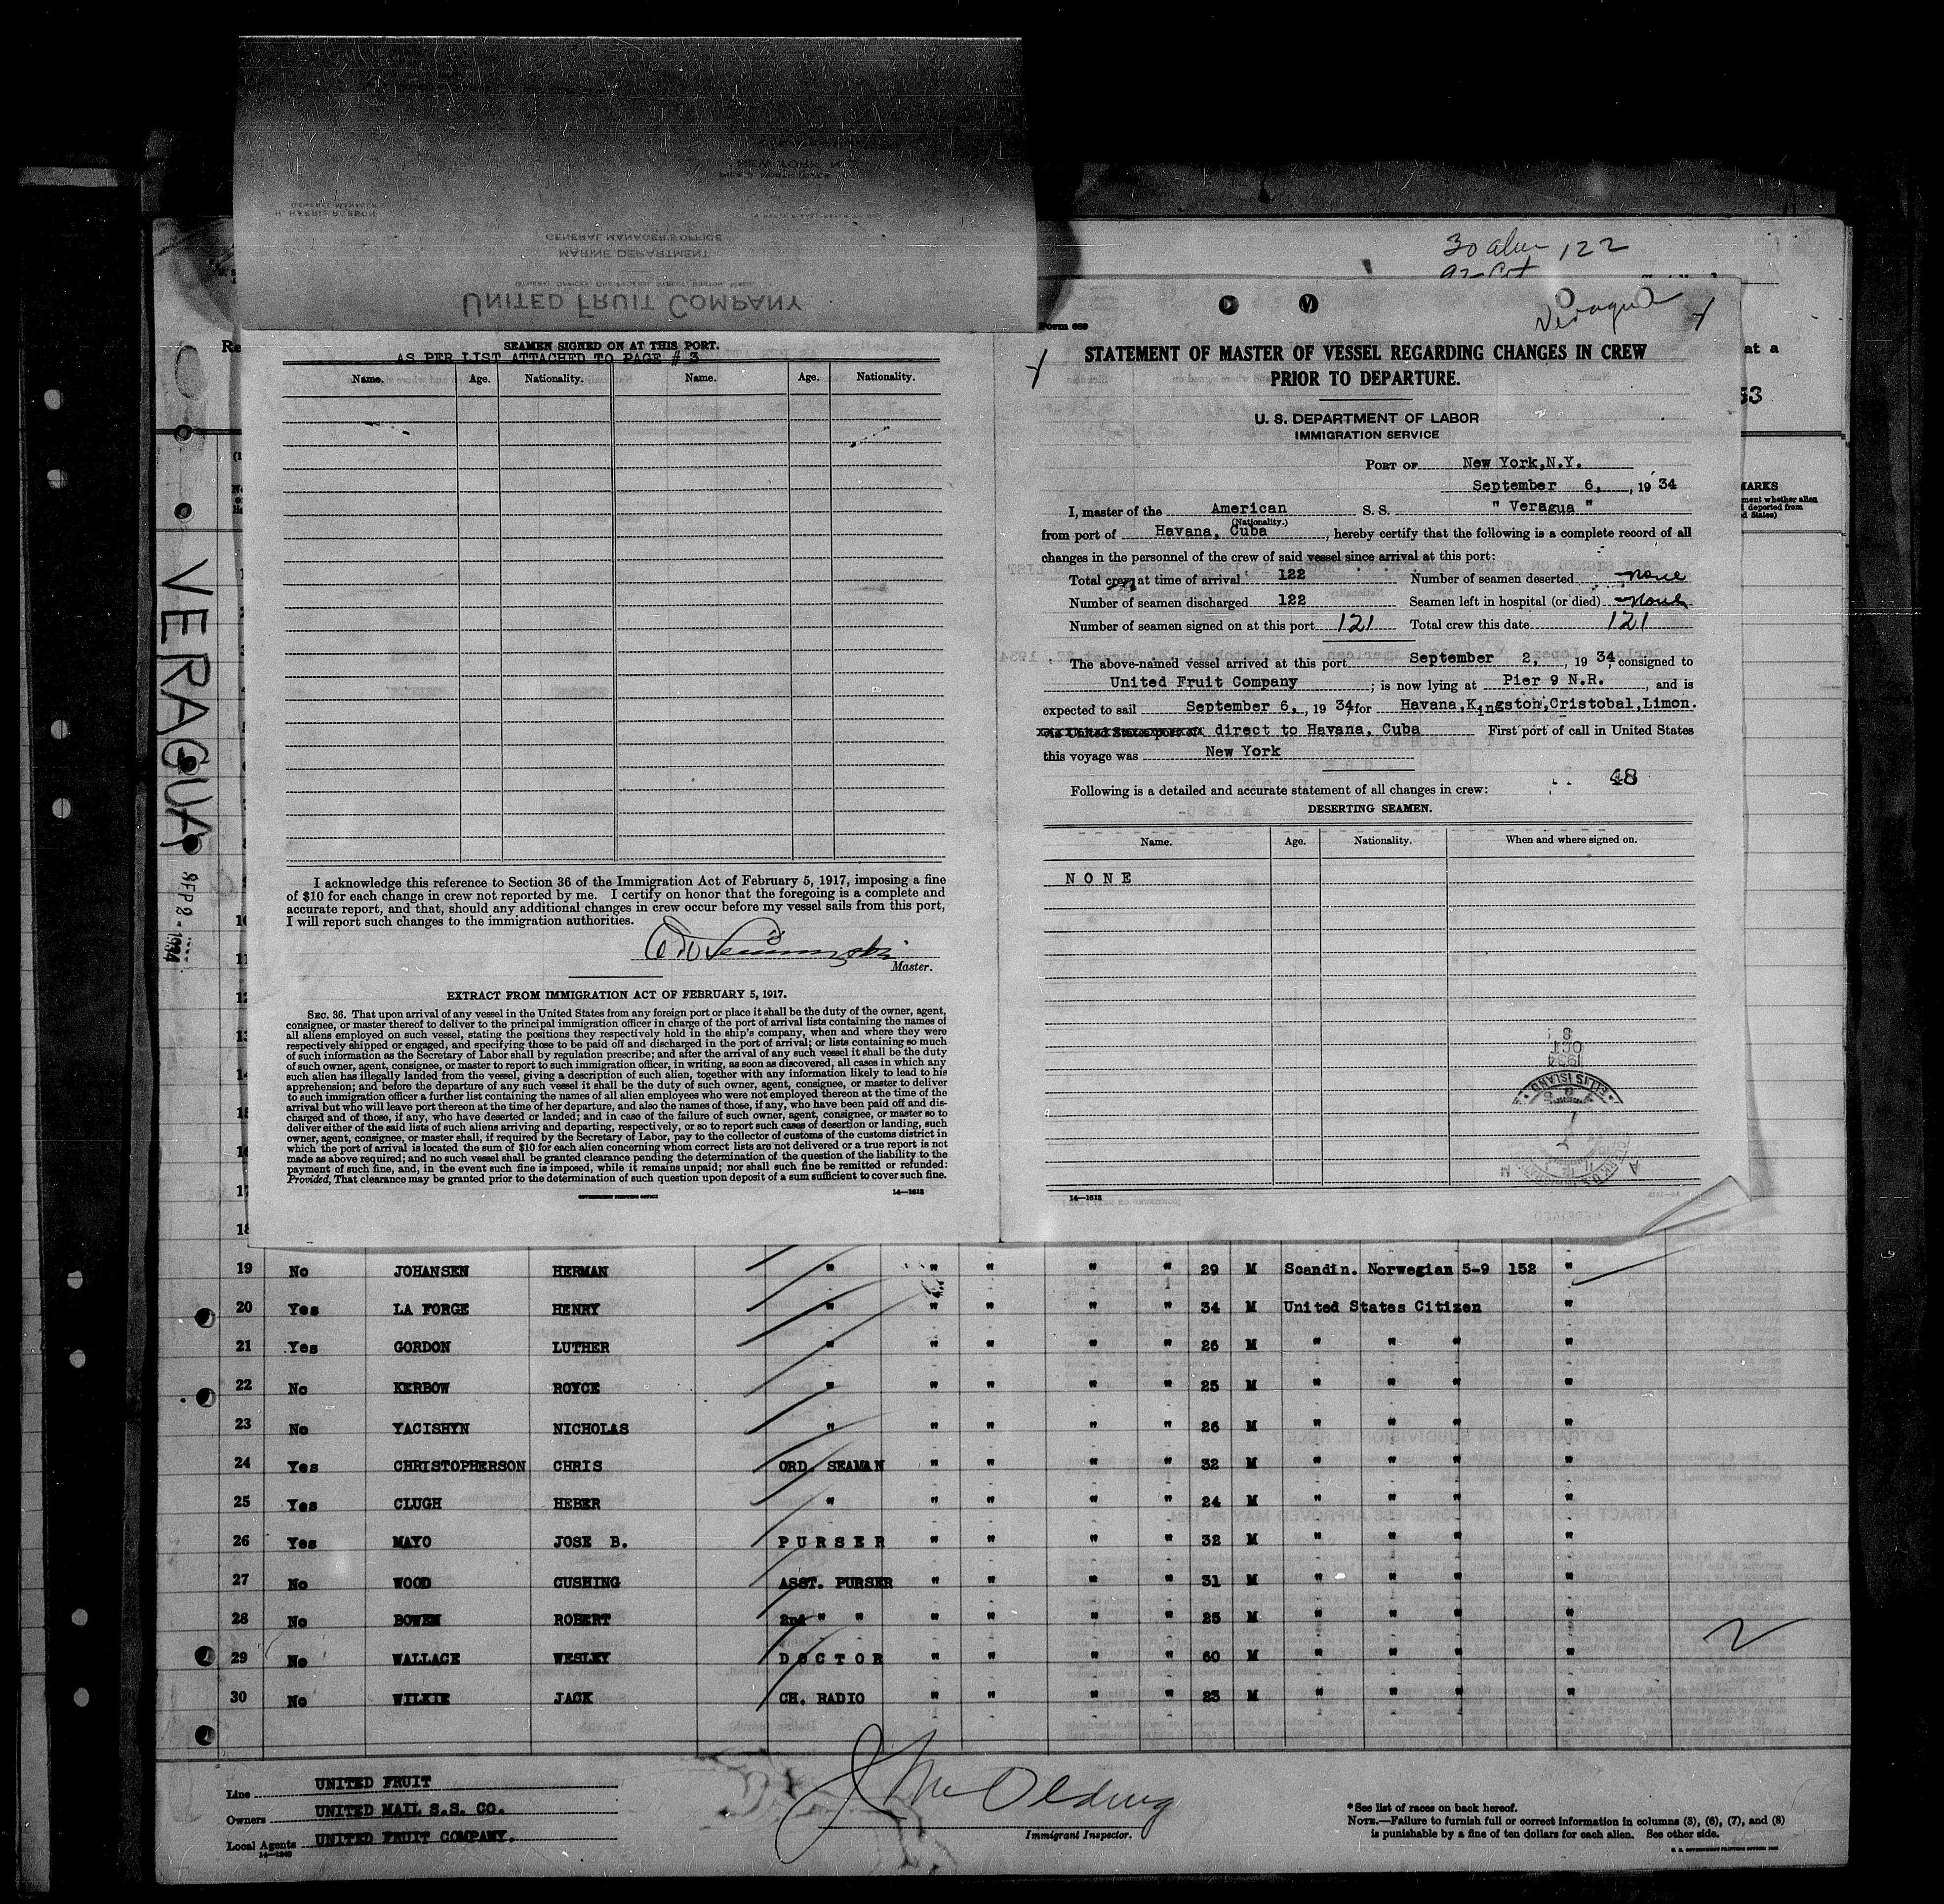 30 alien 122
UNITED FRUIT COMPANY
GENERAL OFFICES, ONE FEDERAL STREET, BOSTON, MASS.
MARINE DEPARTMENT
GENERAL MANAGER'S OFFICE
H. HARRIS ROBSON
GENERAL MANAGER
PIER 3, NORTH RIVER
NEW YORK, N.Y.
SEAMEN SIGNED ON AT THIS PORT.
AS PER LIST ATTACHED TO PAGE # 3
Name. Age. Nationality. Name. Age. Nationality.
I acknowledge this reference to Section 36 of the Immigration Act of February 5, 1917, imposing a fine
of $10 for each change in crew not reported by me. I certify on honor that the foregoing is a complete and
accurate report, and that, should any additional changes in crew occur before my vessel sails from this port,
I will report such changes to the immigration authorities.
Master.
EXTRACT FROM IMMIGRATION ACT OF FEBRUARY 5, 1917.
SEC. 36. That upon arrival of any vessel in the United States from any foreign port or place it shall be the duty of the owner, agent,
consignee, or master thereof to deliver to the principal immigration officer in charge of the port of arrival lists containing the names of
all aliens employed on such vessel, stating the positions they respectively hold in the ship's company, when and where they were
respectively shipped or engaged, and specifying those to be paid off and discharged in the port of arrival; or lists containing so much
of such information as the Secretary of Labor shall by regulation prescribe; and after the arrival of any such vessel it shall be the duty
of such owner, agent, consignee, or master to report to such immigration officer, in writing, as soon as discovered, all cases in which any
such alien has illegally landed from the vessel, giving a description of such alien, together with any information likely to lead to his
apprehension; and before the departure of any such vessel it shall be the duty of such owner, agent, consignee, or master to deliver
to such immigration officer a further list containing the names of all alien employees who were not employed thereon at the time of the
arrival but who will leave port thereon at the time of her departure, and also the names of those, if any, who have been paid off and dis-
charged and of those, if any, who have deserted or landed; and in case of the failure of such owner, agent, consignee, or master so to
deliver either of the said lists of such aliens arriving and departing, respectively, or so to report such cases of desertion or landing, such
owner, agent, consignee, or master shall, if required by the Secretary of Labor, pay to the collector of customs of the customs district in
which the port of arrival is located the sum of $10 for each alien concerning whom correct lists are not delivered or a true report is not
made as above required; and no such vessel shall be granted clearance pending the determination of the question of the liability to the
payment of such fine, and, in the event such fine is imposed, while it remains unpaid; nor shall such fine be remitted or refunded:
Provided, That clearance may be granted prior to the determination of such question upon deposit of a sum sufficient to cover such fine.
GOVERNMENT PRINTING OFFICE 14—1613
Form 689
Veragua
STATEMENT OF MASTER OF VESSEL REGARDING CHANGES IN CREW
PRIOR TO DEPARTURE.
U. S. DEPARTMENT OF LABOR
IMMIGRATION SERVICE
PORT OF New York,N.Y.
September 6, , 19 34
I, master of the American S. S. " Veragua "
(Nationality.)
from port of Havana, Cuba , hereby certify that the following is a complete record of all
changes in the personnel of the crew of said vessel since arrival at this port:
Total crew at time of arrival 122 Number of seamen deserted none
Number of seamen discharged 122 Seamen left in hospital (or died) none
Number of seamen signed on at this port 121 Total crew this date 121
The above-named vessel arrived at this port September 2, , 19 34, consigned to
United Fruit Company ; is now lying at Pier 9 N.R. , and is
expected to sail September 6, , 19 34, for Havana,Kingston,Cristobal,Limon.
direct to Havana, Cuba First port of call in United States
this voyage was New York
48
Following is a detailed and accurate statement of all changes in crew:
DESERTING SEAMEN.
Name. Age. Nationality. When and where signed on.
N O N E
1934
OCT
8
ELLIS ISLAND
14—1613
VERAGUA
SEP 2 - 1934
at a
53
MARKS
19 No JOHANSEN HERMAN " " " " " 29 M Scandin. Norwegian 5-9 152 "
20 Yes LA FORGE HENRY " " " " " 34 M United States Citizen "
21 Yes GORDON LUTHER " " " " " 26 M " " " "
22 No KERBOW ROYCE " " " " " 25 M " " " "
23 No YACISHYN NICHOLAS " " " " " 26 M " " " "
24 Yes CHRISTOPHERSON CHRIS ORD. SEAMAN " " " " 32 M " " " "
25 Yes CLUGH HEBER " " " " " 24 M " " " "
26 Yes MAYO JOSE B. P U R S E R " " " " 32 M " " " "
27 No WOOD CUSHING ASST. PURSER " " " " 31 M " " " "
28 No BOWEN ROBERT 2nd " " " " " " 25 M " " " "
29 No WALLACE WESLEY D O C T O R " " " " 60 M " " " "
30 No WILKIE JACK CH. RADIO " " " " 23 M " " " "
Line UNITED FRUIT
Owners UNITED MAIL S.S. CO.
Local Agents UNITED FRUIT COMPANY.
14—1240
Immigrant Inspector.
*See list of races on back hereof.
NOTE.—Failure to furnish full or correct information in columns (3), (6), (7), and (8)
is punishable by a fine of ten dollars for each alien. See other side.